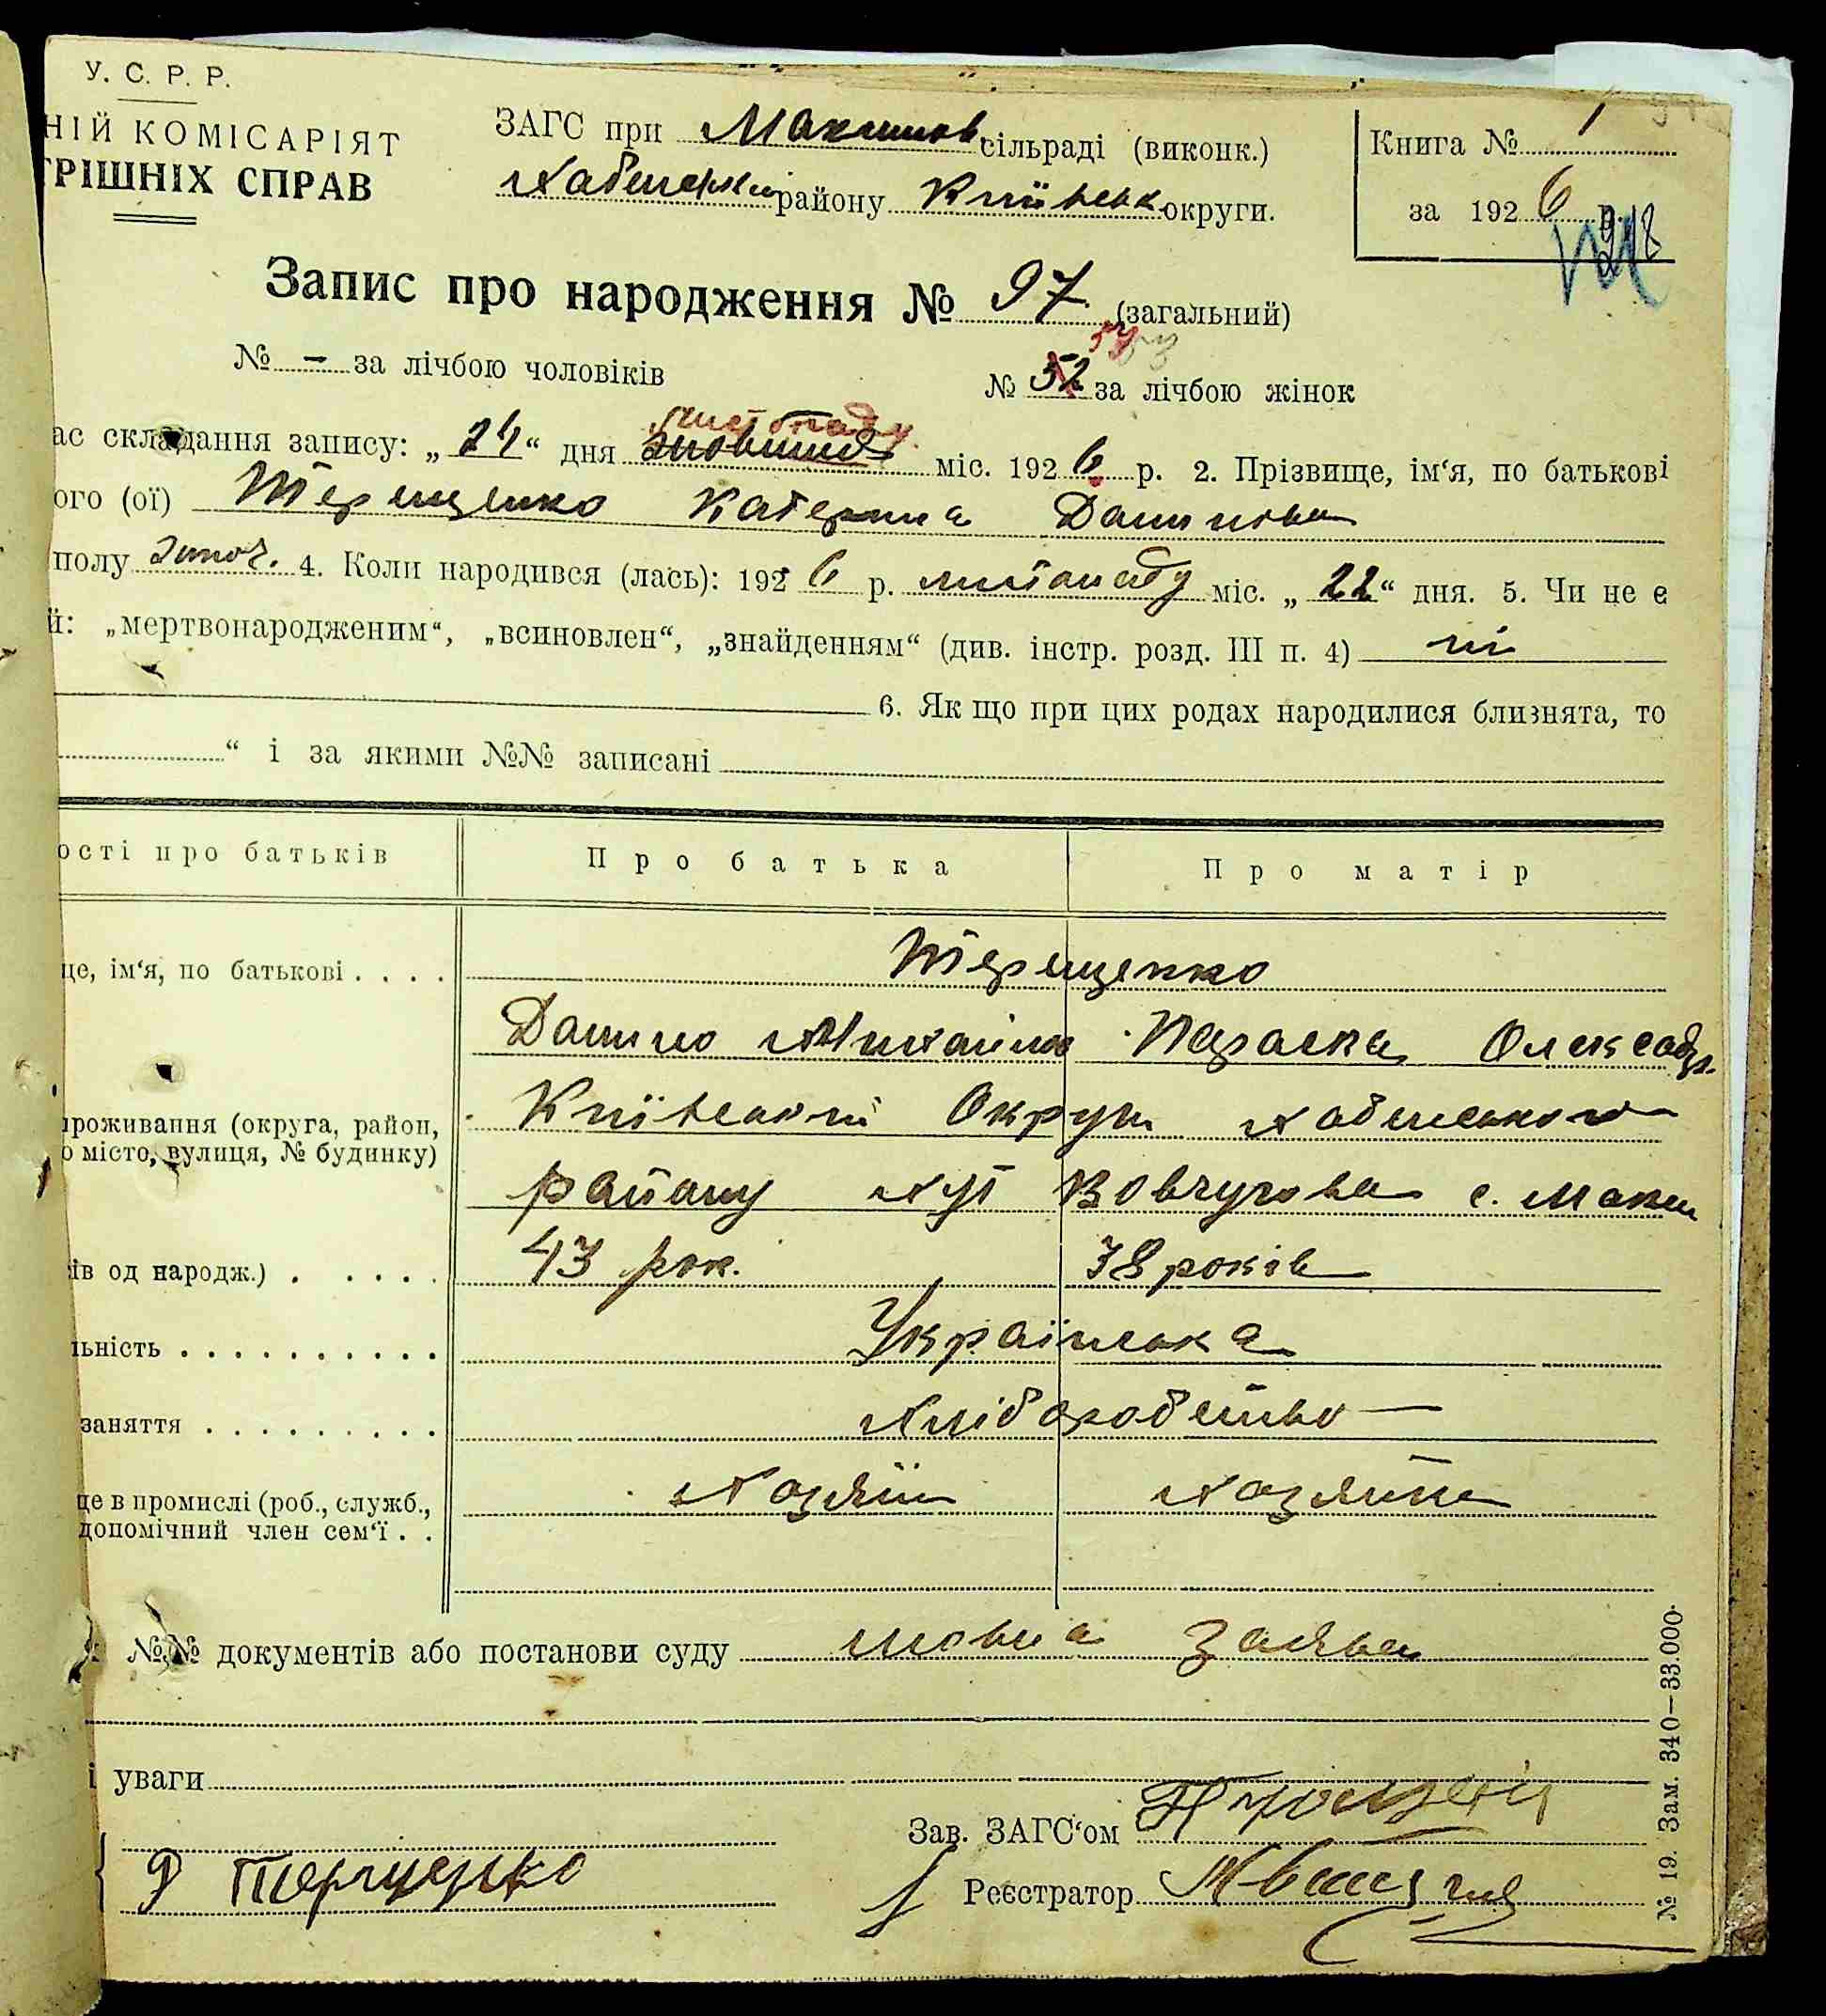 У. С. Р. Р.
НІЙ КОМІСАРІЯТ
ТРІШНІХ СПРАВ
ЗАГС при Максимов сільраді (виконк.)
Хабенськ району Київськ. округи.
Книга № 1
за 1926 р.
248
Запис про народження № 97 (загальний)
№ – за лічбою чоловіків
№ 52 за лічбою жінок
листопаду
ас складання запису: „24“ дня жовтня міс. 1926 р. 2. Прізвище, ім‘я, по батькові
ого (ої) Терещенко Катерина Данилова
полу жіноч. 4. Коли народився (лась): 1926 р. листопаду міс. „22“ дня. 5. Чи не є
й: „мертвонародженим“, „всиновлен“, „знайденням“ (див. інстр. розд. III п. 4) ні
6. Як що при цих родах народилися близнята, то
“ і за якими №№ записані
ості про батьків Про батька Про матір
це, ім‘я, по батькові . . . . Терещенко
Данило Михайлов Параска Олександр.
проживання (округа, район, Київський Округи Хабенського
о місто, вулиця, № будинку) району хут Ковчугова с. Макси
ів од народж.) . . . . . 43 рок. 38 років
льність . . . . . . . . . . Українська
заняття . . . . . . . . . Хліборобство
це в промислі (роб., служб., Хозяїн Хозяйка
допомічний член сем‘ї . .
№№ документів або постанови суду мовна заява
і уваги
Зав. ЗАГС‘ом
Д Терещенко
Реєстратор
№ 19. Зам. 340—33.000.